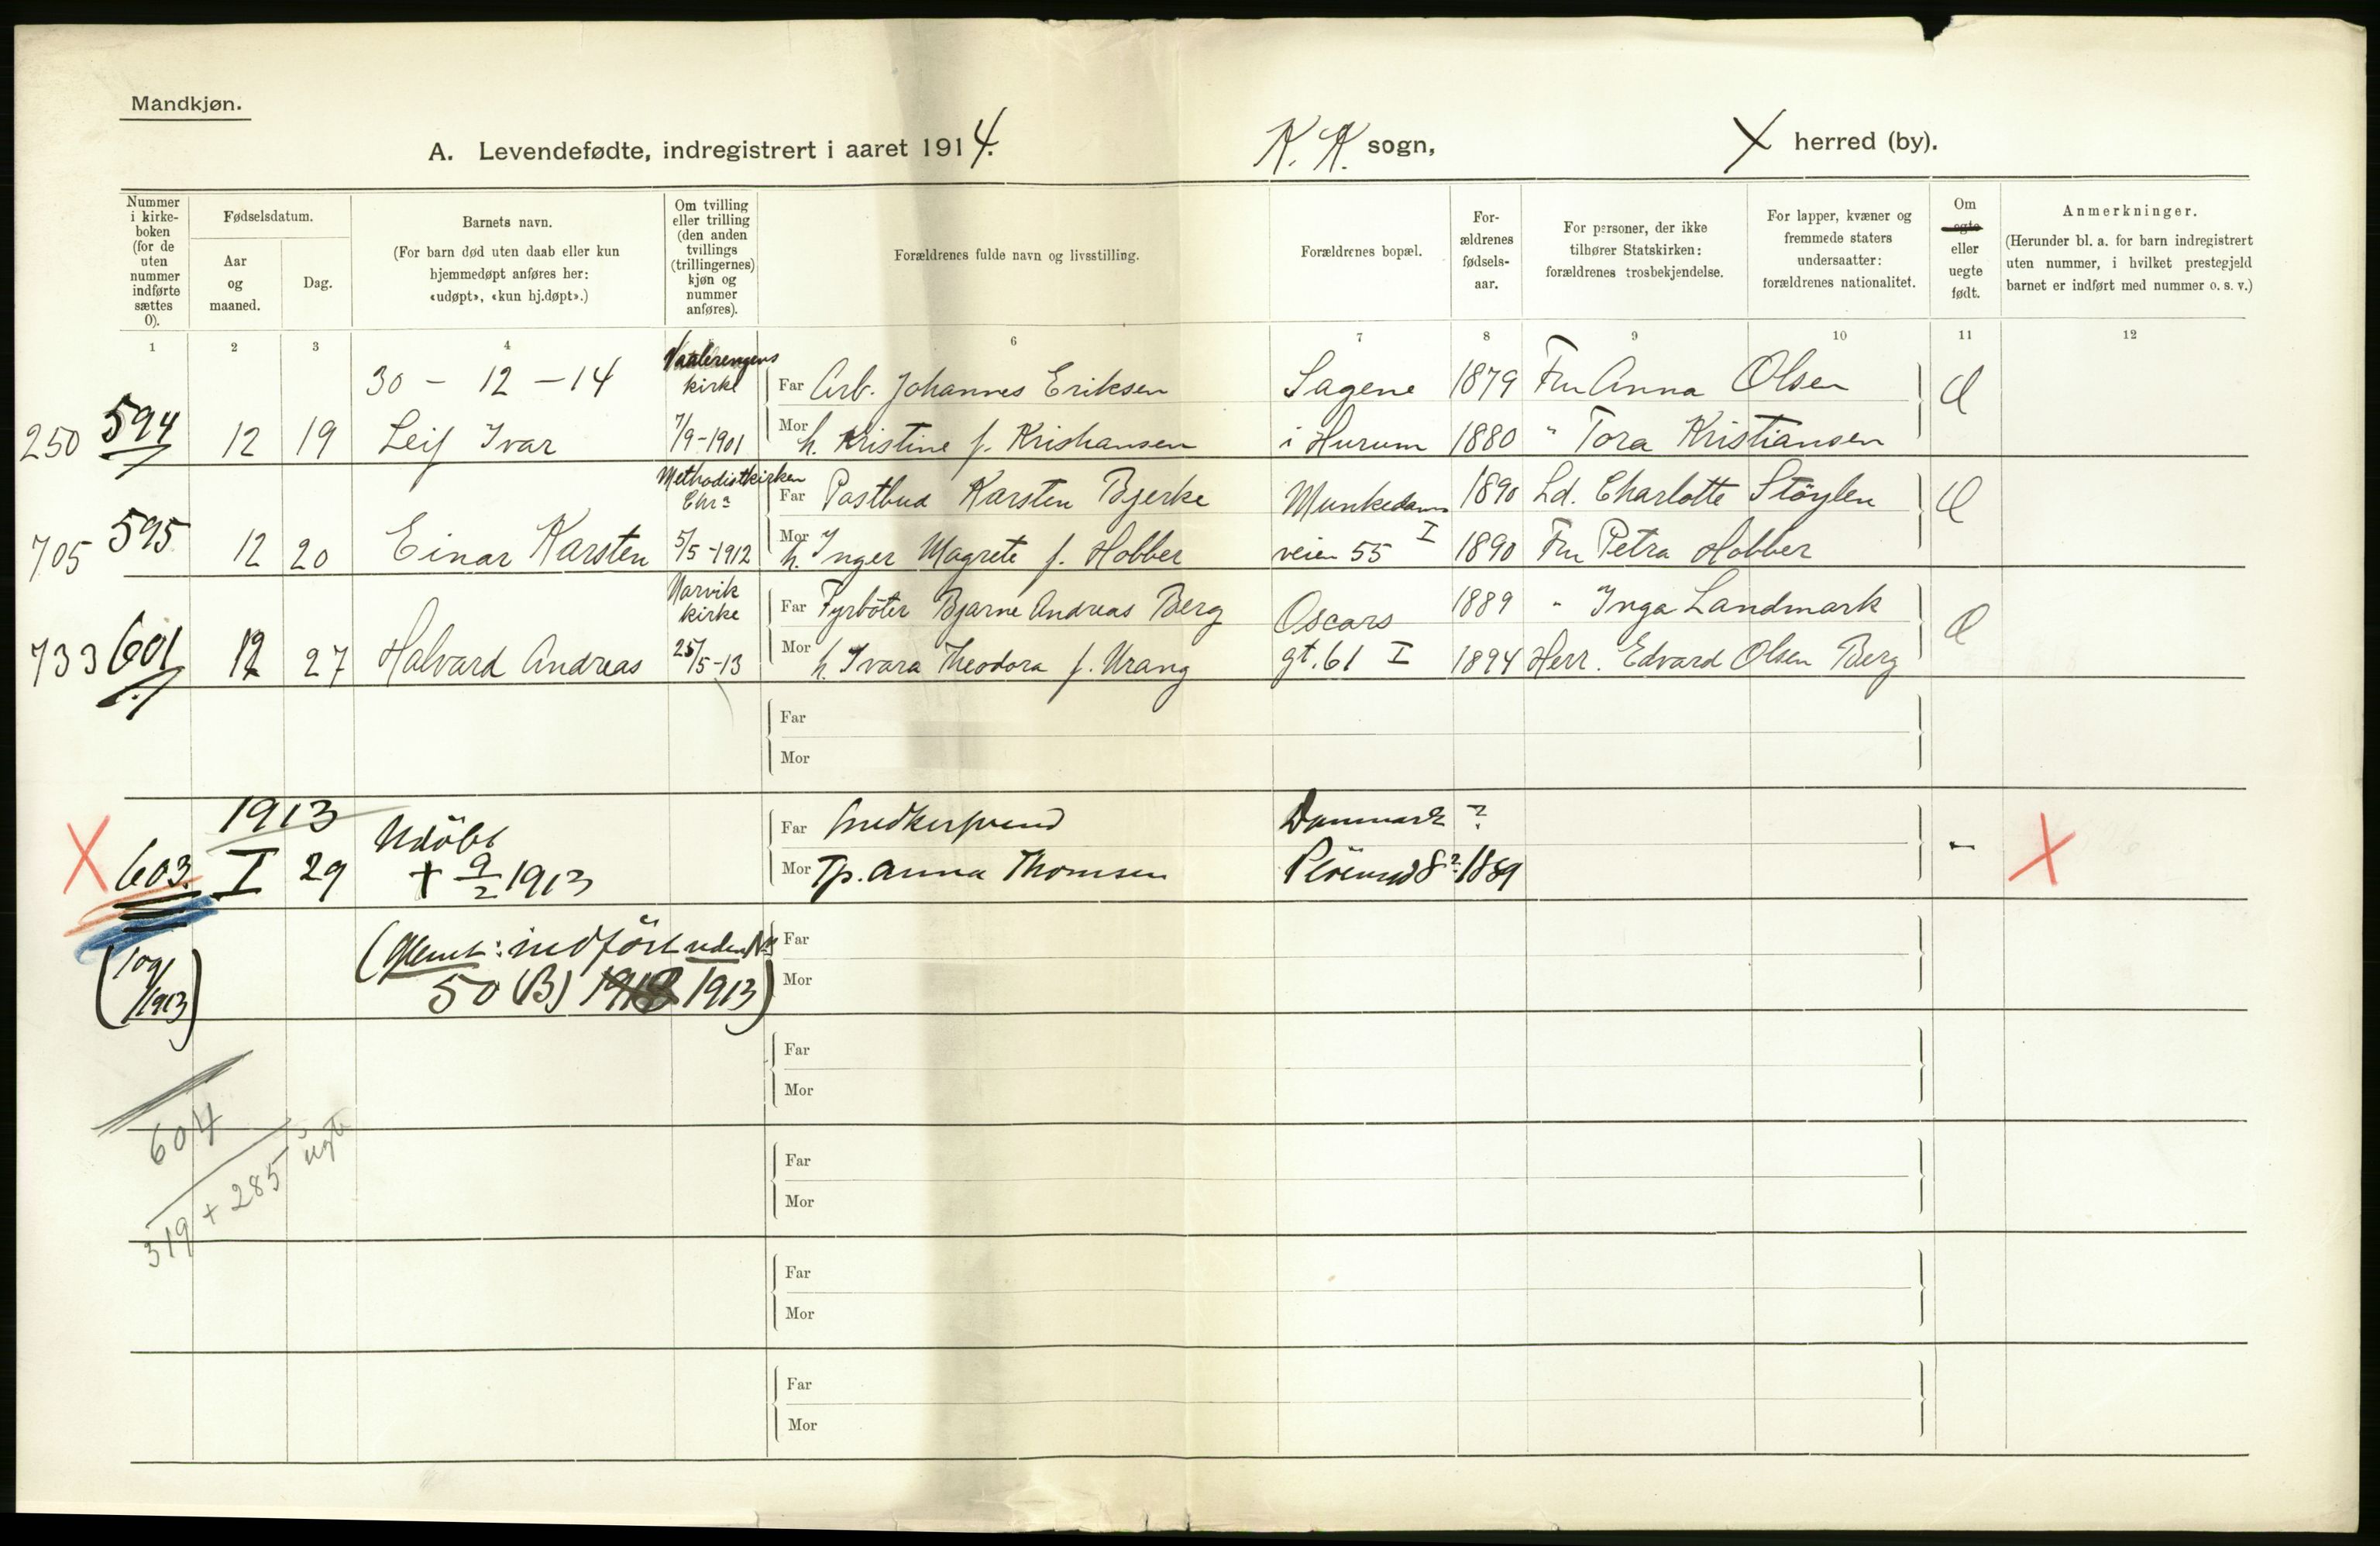 Mandkjøn.
A. Levendefødte, indregistrert i aaret 1914.
K. K. sogn,
X herred (by).
Nummer i kirke-boken (for de uten nummer indførte sættes 0).
Fødselsdatum.
Aar og maaned.
Dag.
Barnets navn.
(For barn død uten daab eller kun hjemmedøpt anføres her: «udøpt», «kun hj.døpt».)
Om tvilling eller trilling (den anden tvillings (trillingernes) kjøn og nummer anføres).
Forældrenes fulde navn og livsstilling.
Forældrenes bopæl.
For-ældrenes fødsels-aar.
For personer, der ikke tilhører Statskirken: forældrenes trosbekjendelse.
For lapper, kvæner og fremmede staters undersaatter: forældrenes nationalitet.
Om egte eller uegte født.
Anmerkninger.
(Herunder bl. a. for barn indregistrert uten nummer, i hvilket prestegjeld barnet er indført med nummer o. s. v.)
1 2 3 4 6 7 8 9 10 11 12
30 - 12 - 14 Vaalerengens kirke Far Arb. Johannes Eriksen Sagene 1879 Fru Anna Olsen
250 594 12 19 Leif Ivar 7/9-1901 Mor h. Kristine f. Kristiansen i Hurum 1880 " Tora Kristiansen
Methodistkirken Chra Far Postbud Karsten Bjerke Munkedams 1890 Ld. Charlotte Støylen
705 595 12 20 Einar Karsten 5/5-1912 Mor h. Inger Magrete f. Hobber veien 55 I 1890 Fru Petra Hobber
Narvik kirke Far Fyrbøter Bjarne Andreas Berg Oscars 1889 " Inga Landmark
733 601 12 27 Halvard Andreas 25/5-13 Mor h. Ivara Theodora f. Urang gt. 61 I 1894 Herr. Edvard Olsen Berg
Far
Mor
1913 Udöbt Far Snedkersvend Danmark ?
X 603. I 29 + 9/2 1913 Mor Tp. Anna Thomsen 1889 - X
(Glemt: indført uden No Far
(109/1913) 50 (B) 1913) Mor
Far
Mor
604
319 + 285 uegte
Far
Mor
Far
Mor
Far
Mor